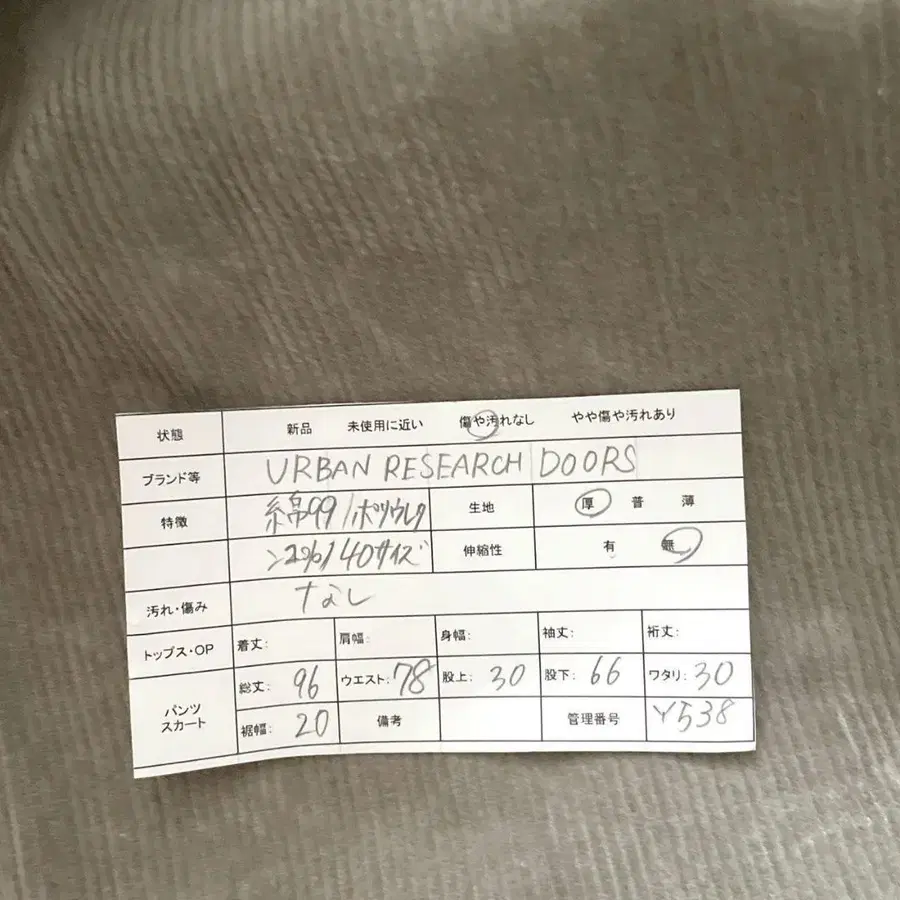 状態 新品 未使用に近い 傷や汚れなし やや傷や汚れあり
ブランド等 URBAN RESEARCH DOORS
特徴 綿99/ポリウレタ 生地 厚 普 薄
40サイズ 伸縮性 有 無
汚れ・傷み なし
トップス・OP 着丈: 肩幅: 身幅: 袖丈: 裄丈:
パンツ スカート 総丈: 96 ウエスト: 78 股上: 30 股下: 66 ワタリ: 30
裾幅: 20 備考 管理番号 Y538